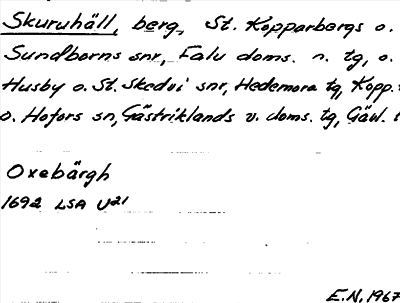 Skuruhäll, berg, St. Kopparbergs o.
Sundborns snr, Falu doms. n. tg, o.
Husby o. St. Skedvi snr, Hedemora tg, Kopp.
o. Hofors sn, Gästriklands v. doms. tg, Gävl.
Oxebärgh
1692 LSA U21
E.N., 1967